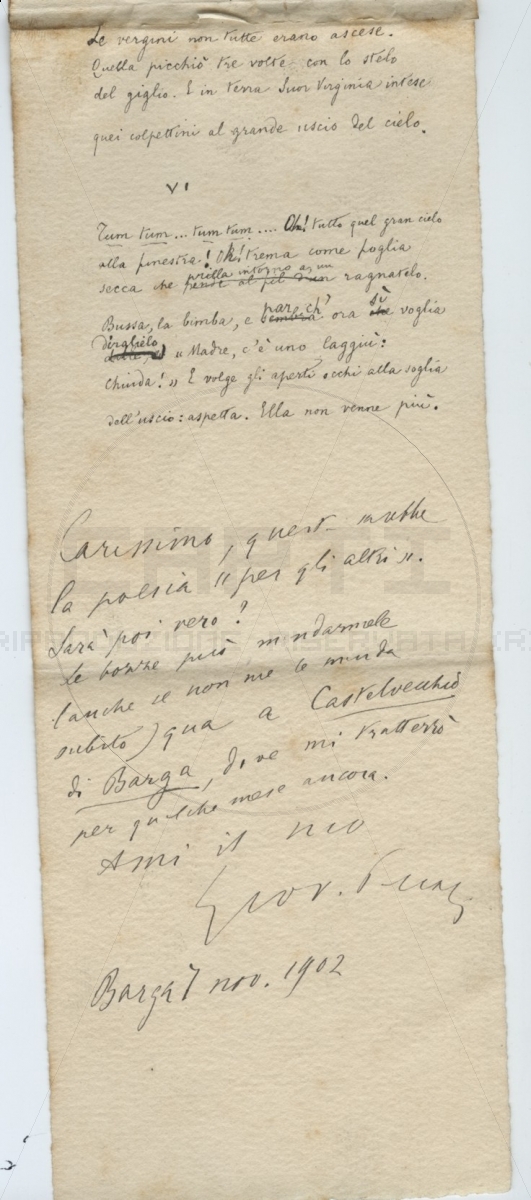 Le vergini non tutte erano ascese.
Quella picchiò tre volte con lo stelo
del giglio. E in terra Suor Virginia intese
quei colpettini al grande uscio del cielo.
VI
Tum tum... tum tum.... Oh! tutto quel gran cielo
alla finestra! Oh! trema come foglia
prilla intorno a un
secca che pende al fil d'un ragnatelo.
par ch' sì
Bussa, la bimba, e ora voglia
dirglielo
« Madre, c'è uno laggiù:
chiuda! » E volge gli aperti occhi alla soglia
dell'uscio: aspetta. Ella non venne più.
Carissimo, questa sarebbe
la poesia « per gli altri ».
Sarà poi vero?
Le bozze può mandarmele
(anche se non me le manda
subito) qua a Castelvecchio
di Barga, dove mi tratterrò
per qualche mese ancora.
Ami il suo
Giov. Pascoli
Barga 7 nov. 1902